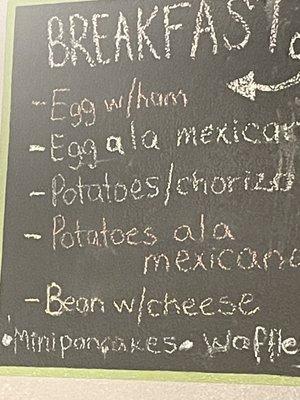 BREAKFAST
- Egg w/ham
- Egg ala mexican
- Potatoes/chorizo
- Potatoes ala
mexicana
- Bean w/cheese
• Minipancakes • Waffle